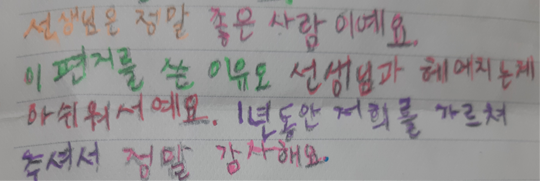 선생님은 정말 좋은 사람이예요.
이 편지를 쓴 이유도 선생님과 헤에지는게
아쉬워서예요. 1년동안 저희를 가르쳐
주셔서 정말 감사해요.